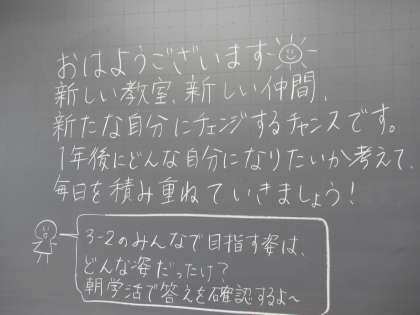 おはようございます
新しい教室、新しい仲間、
新たな自分にチェンジするチャンスです。
1年後にどんな自分になりたいか考えて、
毎日を積み重ねていきましょう!
3-2のみんなで目指す姿は、
どんな姿だったけ?
朝学活で答えを確認するよ~